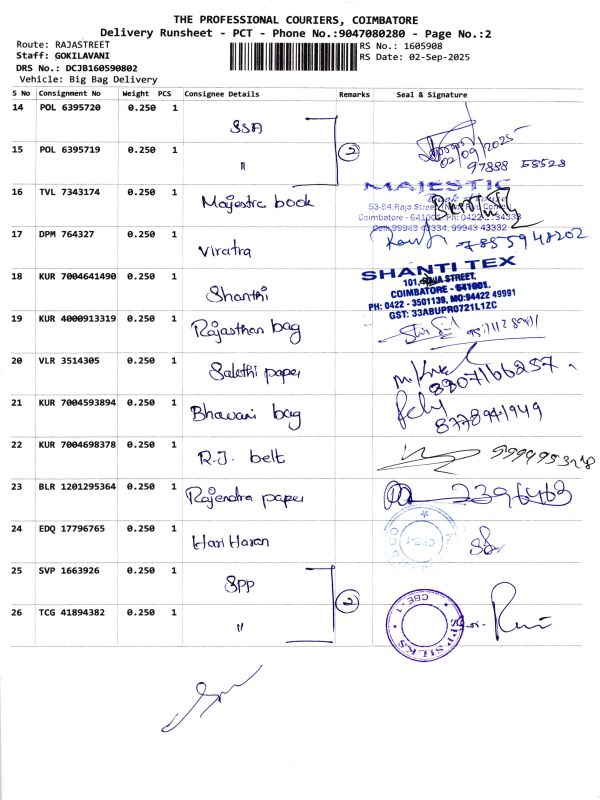 THE PROFESSIONAL COURIERS, COIMBATORE
Delivery Runsheet - PCT - Phone No.:9047080280 - Page No.:2
Route: RAJASTREET
RS No.: 1605908
Staff: GOKILAVANI
RS Date: 02-Sep-2025
DRS No.: DCJB160590802
Vehicle: Big Bag Delivery
S No Consignment No Weight PCS Consignee Details Remarks Seal & Signature
14 POL 6395720 0.250 1 SSA
15 POL 6395719 0.250 1 " 2
02/09/2025
97888 58528
16 TVL 7343174 0.250 1 Majestic book
MAJESTIC
Book House
53-54, Raja Street,
Coimbatore - 641001. Ph: 0422 -
Cell: 99943 43334, 99943 43332
17 DPM 764327 0.250 1 Viratra 7855948202
18 KUR 7004641490 0.250 1 Shanthi
SHANTI TEX
101, RAJA STREET,
COIMBATORE - 641001.
PH: 0422 - 3501139, MO:94422 49991
GST: 33ABUPR0721L1ZC
19 KUR 4000913319 0.250 1 Rajasthan bag
20 VLR 3514305 0.250 1 Sakthi paper
21 KUR 7004593894 0.250 1 Bhavani bag
8778941949
22 KUR 7004698378 0.250 1 R.J. belt
23 BLR 1201295364 0.250 1 Rajendra paper 2396463
24 EDQ 17796765 0.250 1 Hari Haran
CBE-1
25 SVP 1663926 0.250 1 SPP
26 TCG 41894382 0.250 1 " 2
CBE-1
SPP SILKS